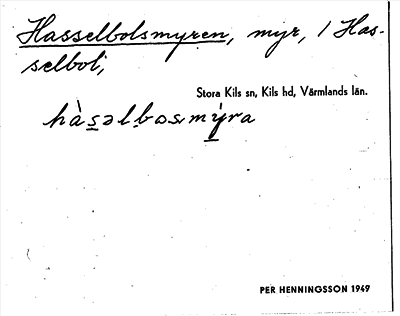 Hasselbolsmyren, myr, i Has-
selbol;
Stora Kils sn, Kils hd, Värmlands län.
hàsəlbosmýra
PER HENNINGSSON 1969